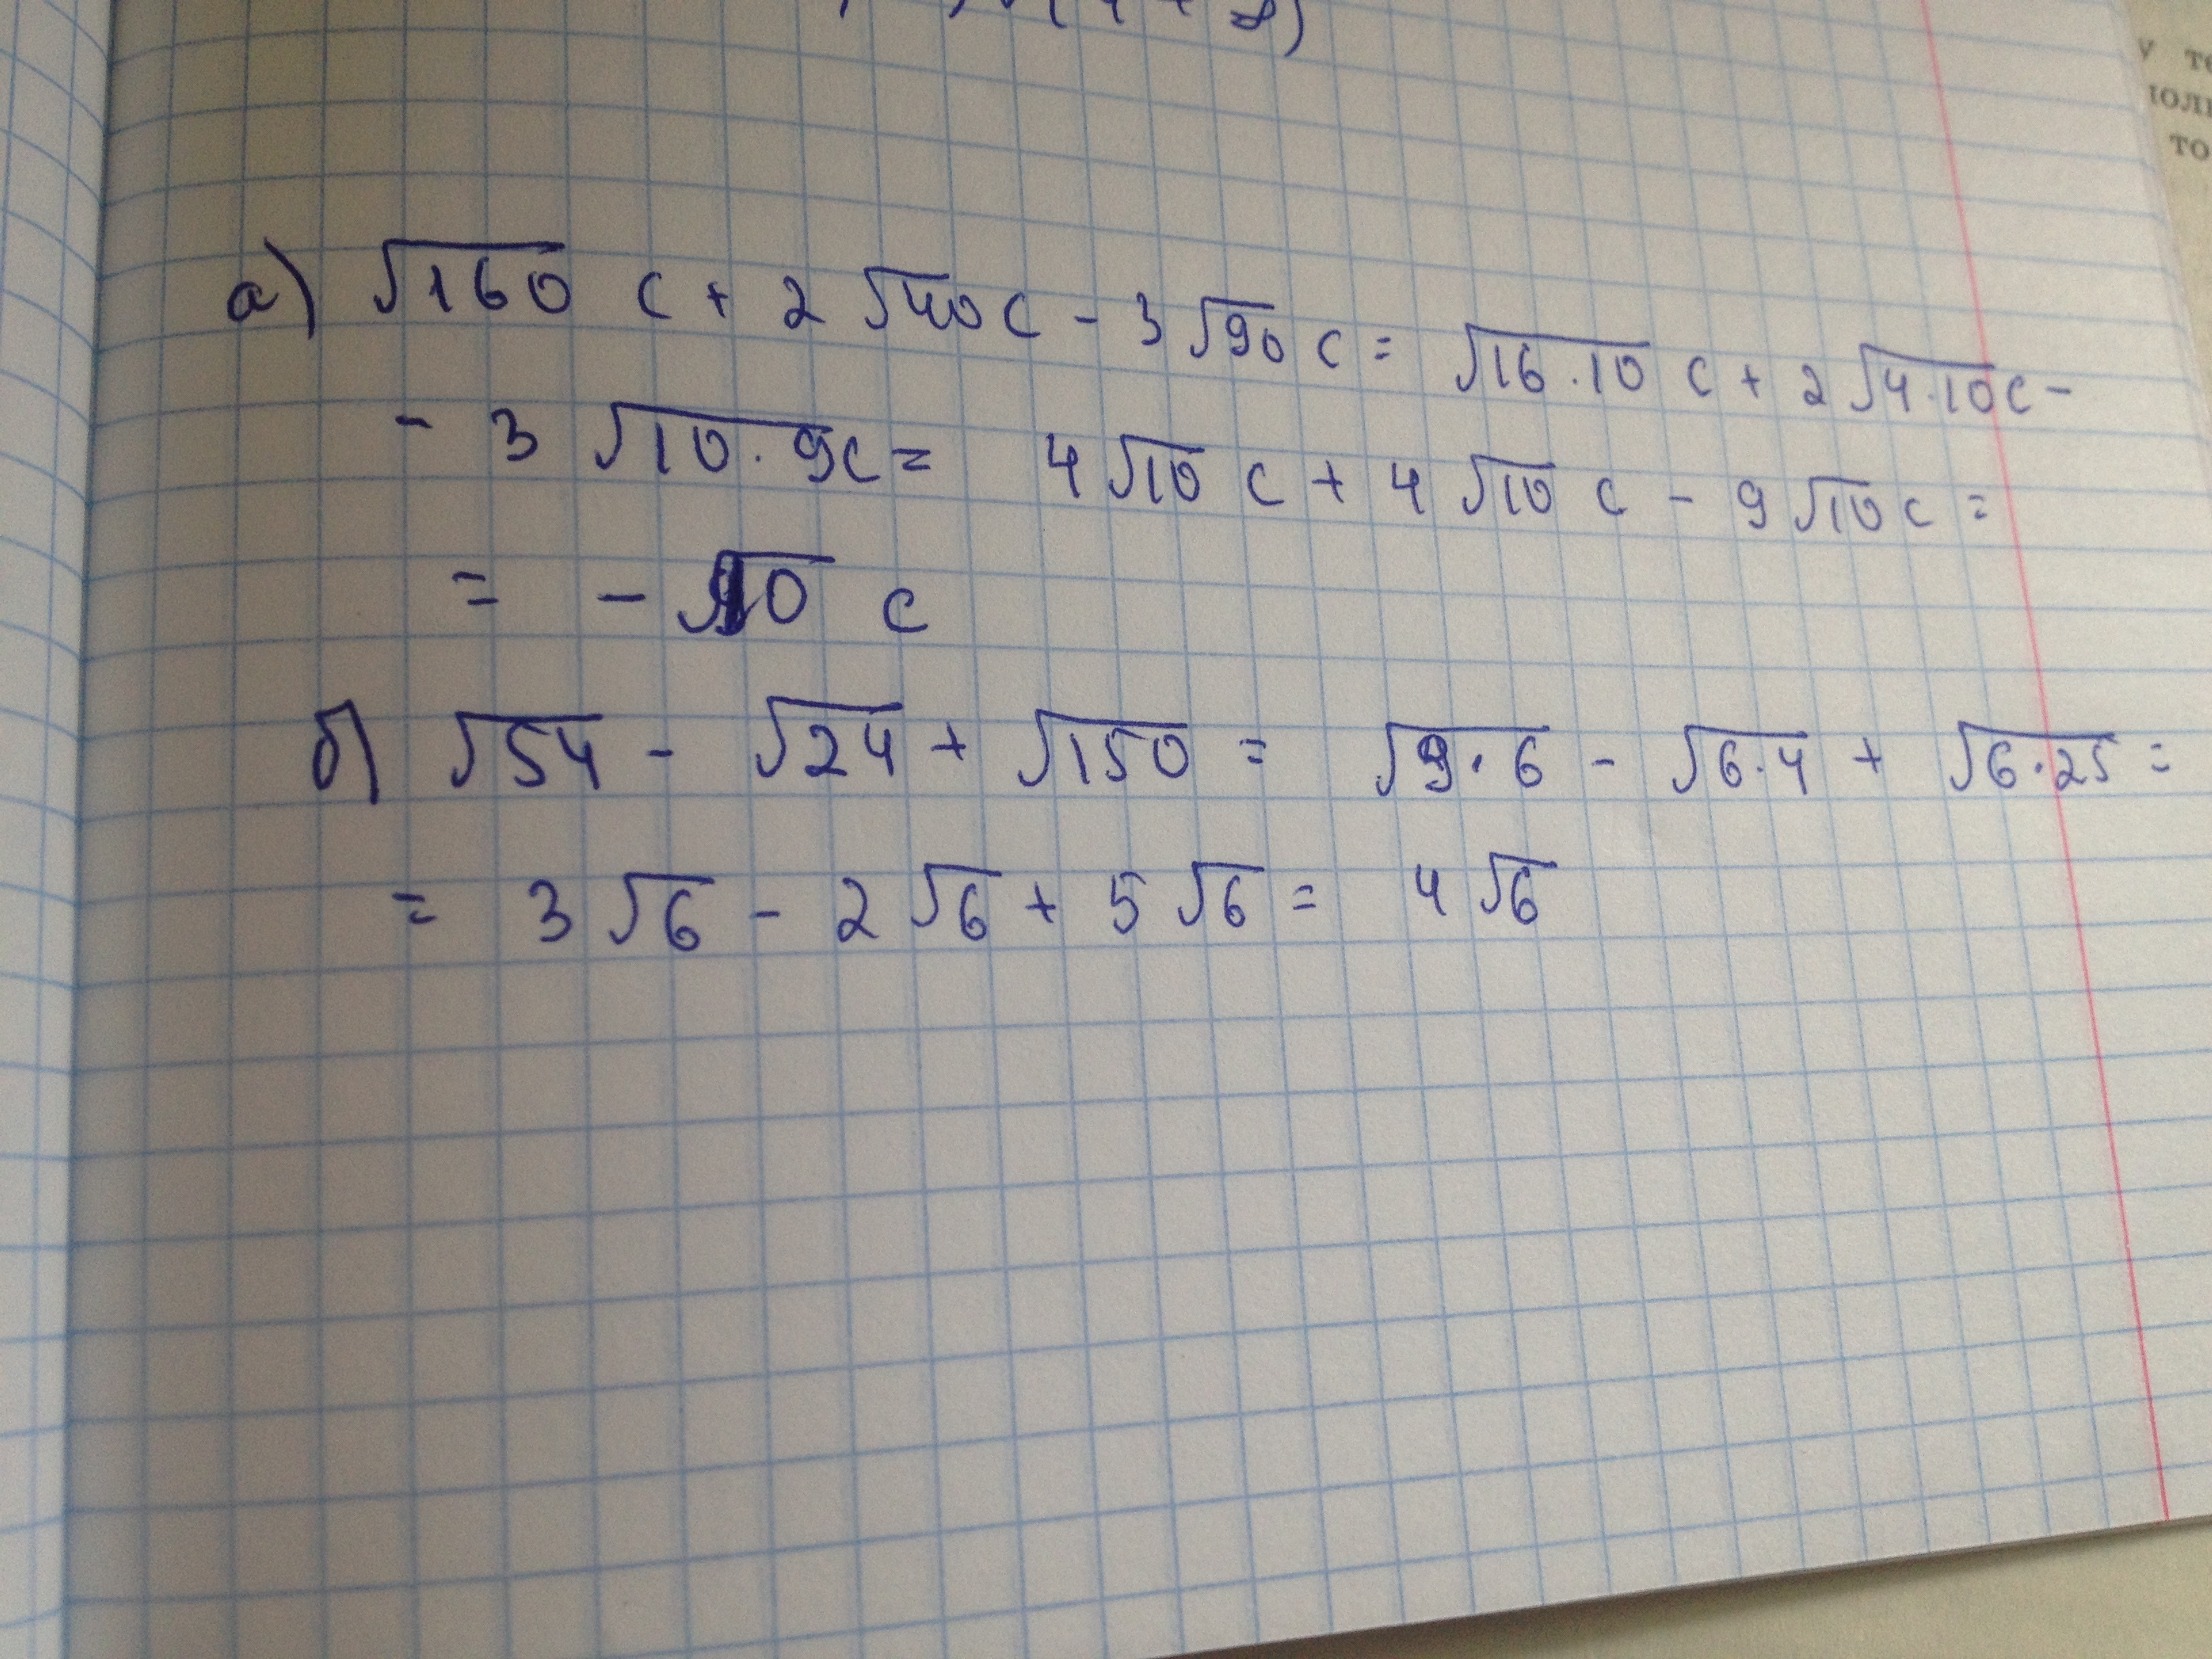 а) √160 c + 2 √40 c - 3 √90 c = √16·10 c + 2 √4·10 c -
- 3 √10·9 c = 4 √10 c + 4 √10 c - 9 √10 c =
= - √10 c
б) √54 - √24 + √150 = √9·6 - √6·4 + √6·25 =
= 3 √6 - 2 √6 + 5 √6 = 4 √6
у
то